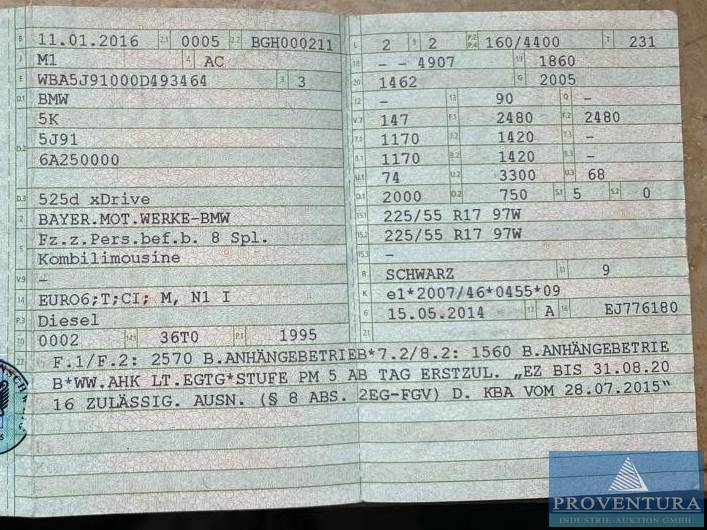 B 11.01.2016 2.1 0005 2.2 BGH000211
J M1 4 AC
E WBA5J91000D493464 3 3
D.1 BMW
5K
D.2 5J91
6A250000
D.3 525d xDrive
2 BAYER.MOT.WERKE-BMW
5 Fz.z.Pers.bef.b. 8 Spl.
Kombilimousine
V.9 -
14 EURO6;T;CI; M, N1 I
P.3 Diesel
10 0002 14.1 36T0 P.1 1995
L 2 9 2 P.2 P.4 160/4400 T 231
18 - - 4907 19 1860
20 1462 G 2005
12 - 13 90 Q -
V.7 147 F.1 2480 F.2 2480
7.1 1170 7.2 1420 7.3 -
8.1 1170 8.2 1420 8.3 -
U.1 74 U.2 3300 U.3 68
O.1 2000 O.2 750 S.1 5 S.2 0
15.1 225/55 R17 97W
15.2 225/55 R17 97W
15.3 -
R SCHWARZ 11 9
K e1*2007/46*0455*09
6 15.05.2014 17 A 16 EJ776180
21
22 F.1/F.2: 2570 B.ANHÄNGEBETRIEB*7.2/8.2: 1560 B.ANHÄNGEBETRIE
B*WW.AHK LT.EGTG*STUFE PM 5 AB TAG ERSTZUL. „EZ BIS 31.08.20
16 ZULÄSSIG. AUSN. (§ 8 ABS. 2EG-FGV) D. KBA VOM 28.07.2015"
PROVENTURA
INDUSTRIE-AUKTION GMBH